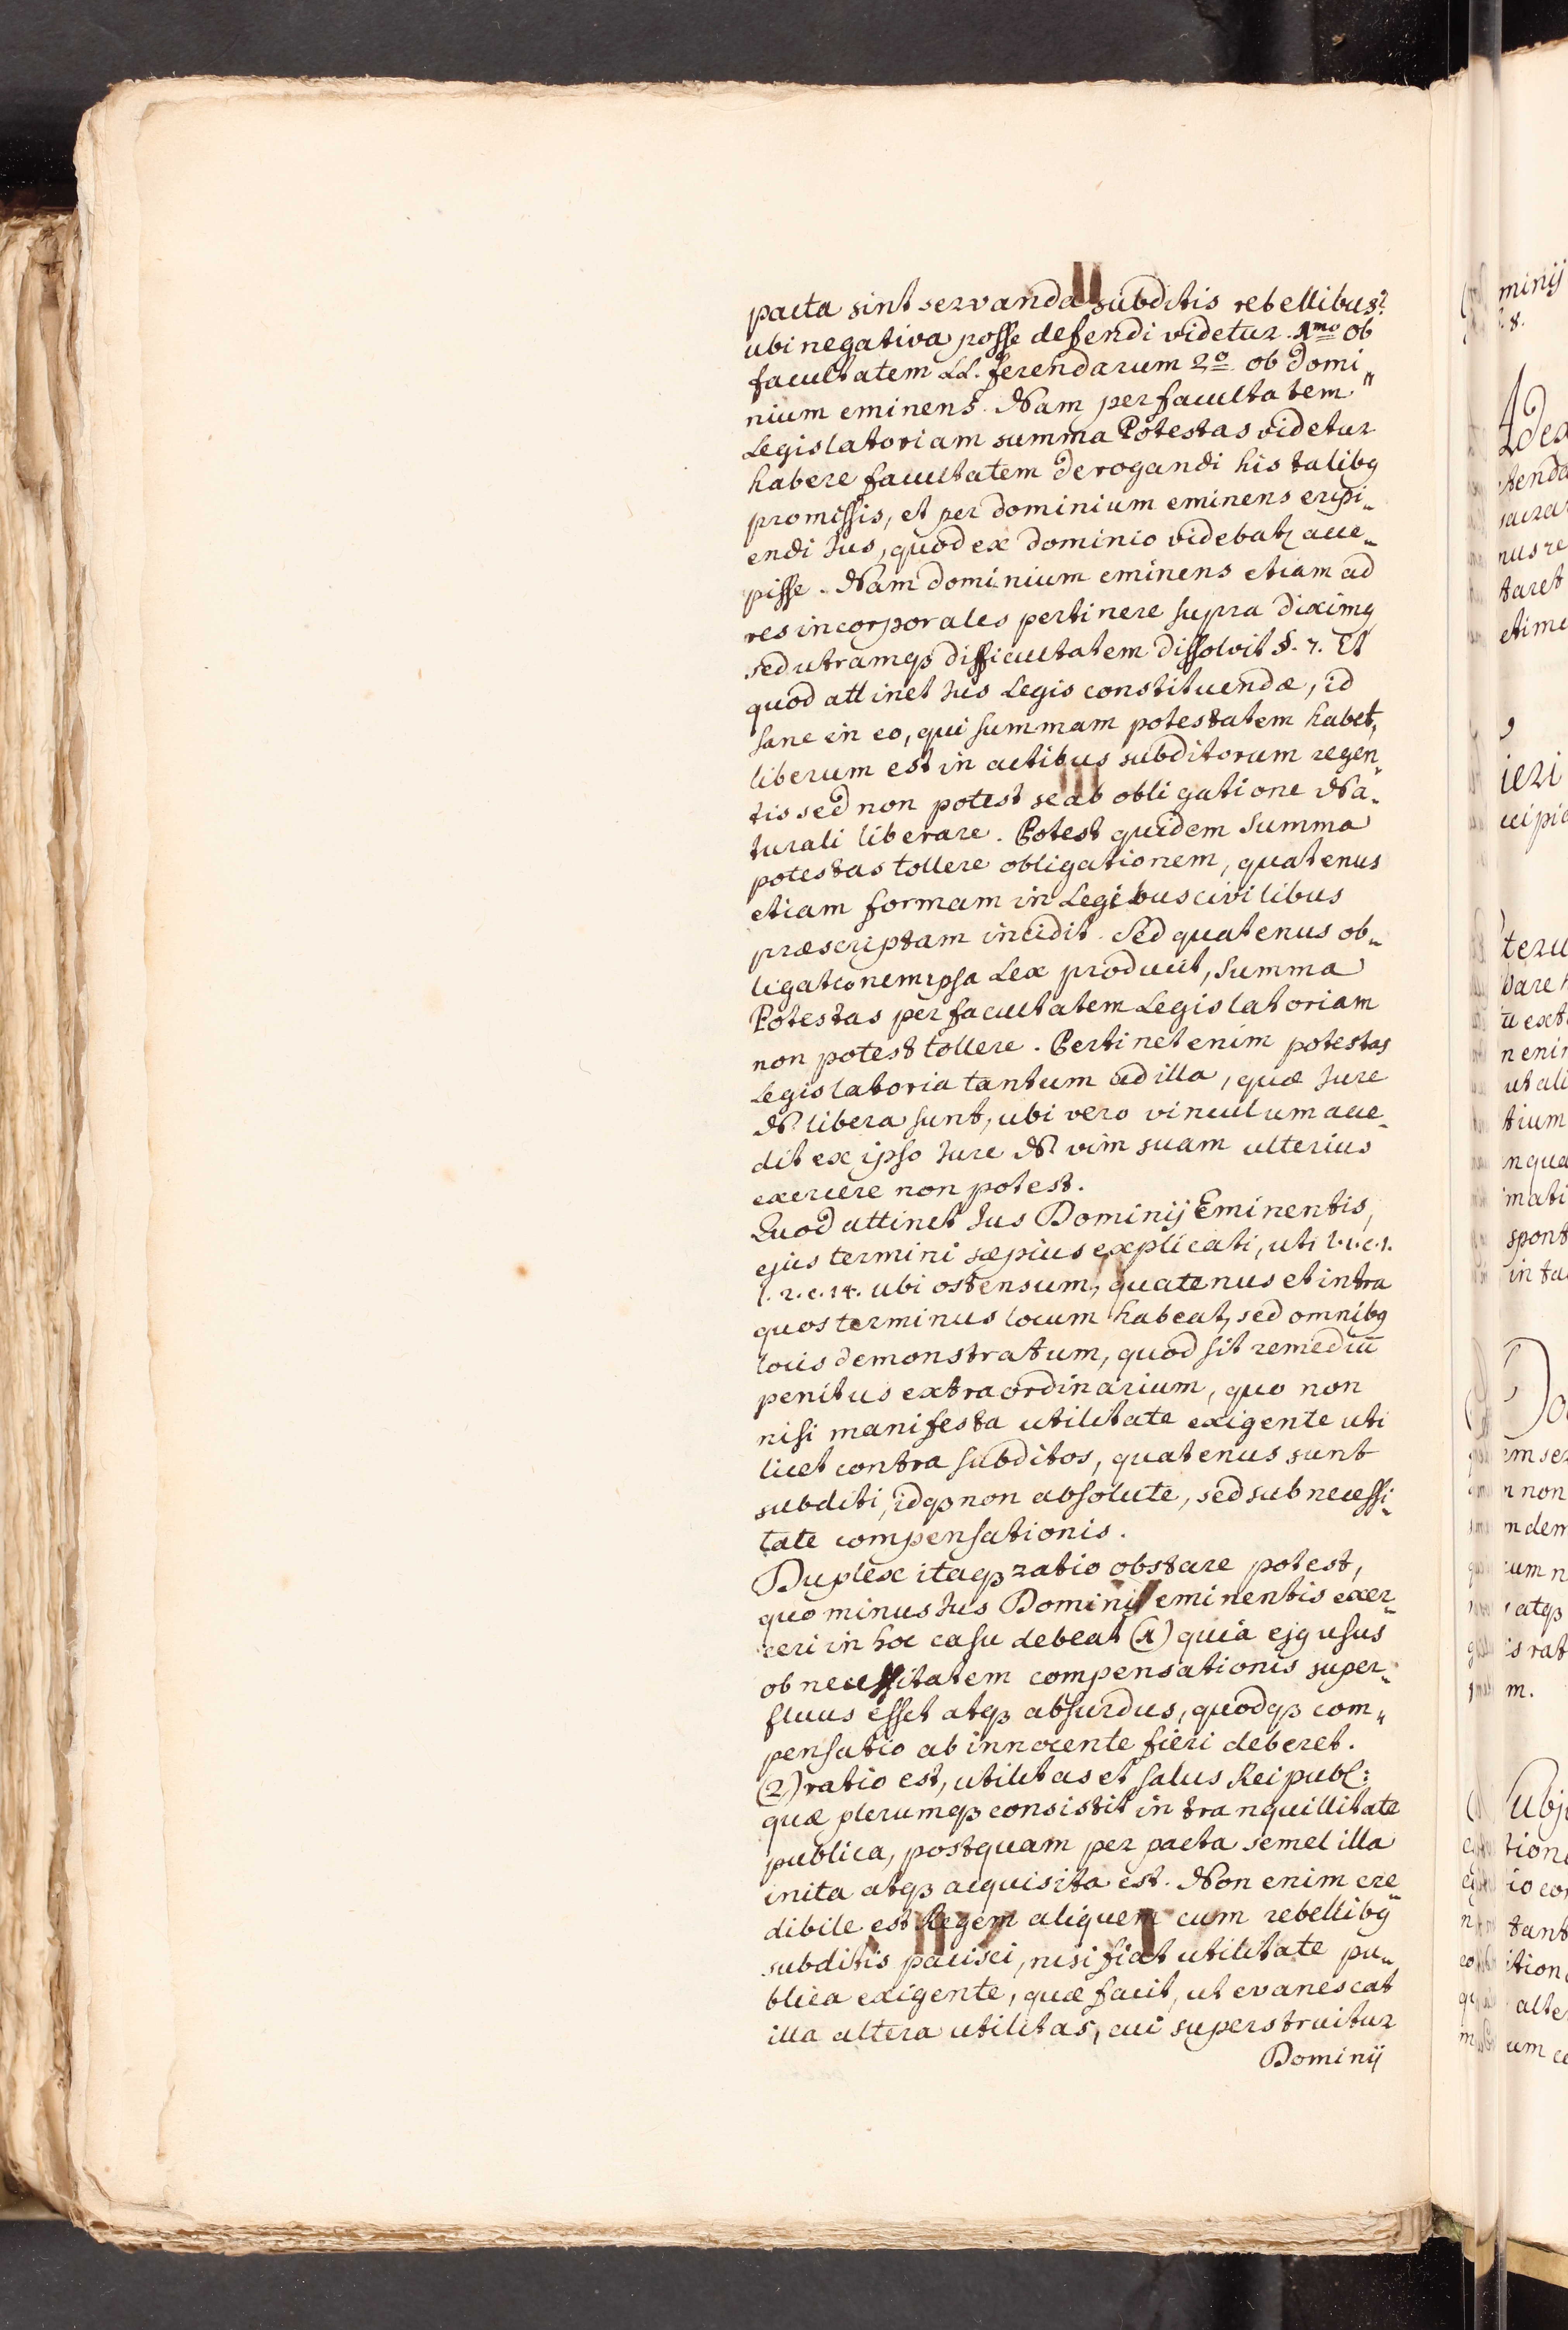 pacta sint servanda subditis rebellibus?
ubi negativa posse defendi videtur. 1mo ob
facultatem LL. ferendarum 2o ob domi„
nium eminens. Nam per facultatem
Legislatoriam summa Potestas videtur
habere facultatem derogandi his talibq
promissis, et per dominium eminens eripi„
endi Jus, quod ex dominio videbatr acce„
pisse. Nam dominium eminens etiam ad
res incorporales pertinere supra diximq
sed utramqꝫ difficultatem dissolvit §. 7. Et
quod attinet Jus Legis constituendæ, id
sane in eo, qui summam potestatem habet,
liberum est in actibus subditorum regen„
tis sed non potest se ab obligatione Na„
turali liberare. Potest quidem Summa
potestas tollere obligationem, quatenus
etiam formam in Legibus civilibus
præscriptam incidit. Sed quatenus ob„
ligationem ipsa Lex producit, Summa
Potestas per facultatem Legislatoriam
non potest tollere. Pertinet enim potestas
Legislatoria tantum ad illa, quæ Jure
N. libera sunt, ubi vero vinculum acce„
dit ex ipso Jure N. vim suam ulterius
exercere non potest.
Quod attinet Jus Dominij Eminentis,
ejus termini sæpius explicati, uti l. 1. c. 1.
l. 2. c. 14. ubi ostensum, quatenus et intra
quos terminus locum habeat, sed omnibq
locis demonstratum, quod sit remediū
penitus extraordinarium, quo non
nisi manifesta utilitate exigente uti
licet contra subditos, quatenus sunt
subditi, idqꝫ non absolute, sed sub necessi„
tate compensationis.
Duplex itaqꝫ ratio obstare potest,
quo minus Jus Dominij eminentis exer„
ceri in hoc casu debeat (1) quia ejq usus
ob necessitatem compensationis super„
fluus esset atqꝫ absurdus, quodqꝫ com„
pensatio ab innocente fieri deberet.
(2) ratio est, utilitas et salus Reipubl:
quæ plerumqꝫ consistit in tranquillitate
publica, postquam per pacta semel illa
inita atqꝫ acquisita est. Non enim cre„
dibile est Regem aliquem cum rebellibq
subditis pacisci, nisi fiat utilitate pu„
blica exigente, quæ facit, ut evanescat
illa altera utilitas, cui superstruitur
Dominij